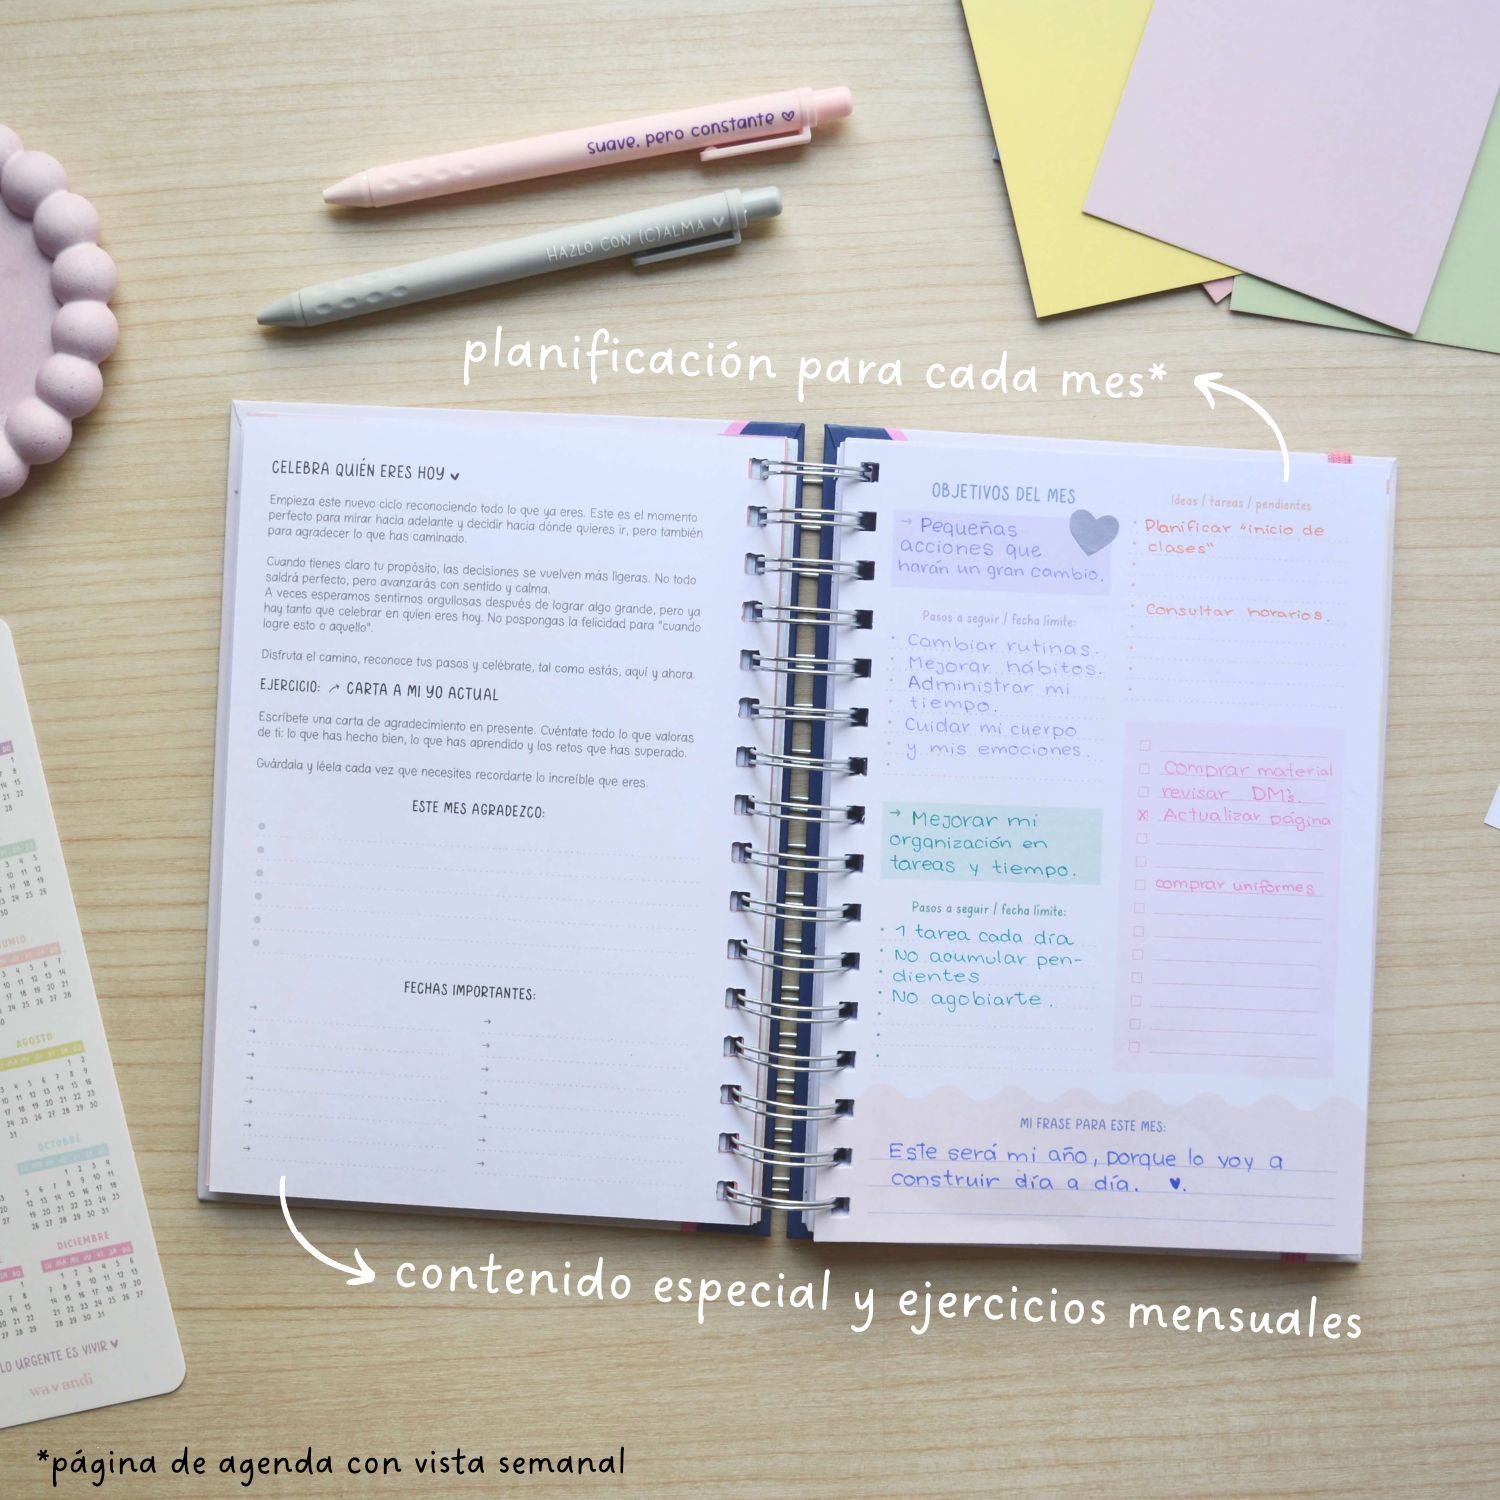 suave, pero constante
HAZLO CON (C)ALMA
planificación para cada mes*
CELEBRA QUIÉN ERES HOY
Empieza este nuevo ciclo reconociendo todo lo que ya eres. Este es el momento
perfecto para mirar hacia adelante y decidir hacia dónde quieres ir, pero también
para agradecer lo que has caminado.
Cuando tienes claro tu propósito, las decisiones se vuelven más ligeras. No todo
saldrá perfecto, pero avanzarás con sentido y calma.
A veces esperamos sentirnos orgullosas después de lograr algo grande, pero ya
hay tanto que celebrar en quien eres hoy. No pospongas la felicidad para "cuando
logre esto o aquello".
Disfruta el camino, reconoce tus pasos y celébrate, tal como estás, aquí y ahora.
EJERCICIO: → CARTA A MI YO ACTUAL
Escríbete una carta de agradecimiento en presente. Cuéntate todo lo que valoras
de ti: lo que has hecho bien, lo que has aprendido y los retos que has superado.
Guárdala y léela cada vez que necesites recordarte lo increíble que eres.
ESTE MES AGRADEZCO:
FECHAS IMPORTANTES:
OBJETIVOS DEL MES
→ Pequeñas
acciones que
harán un gran cambio.
Pasos a seguir / fecha límite:
Cambiar rutinas.
Mejorar hábitos.
Administrar mi
tiempo.
Cuidar mi cuerpo
y mis emociones.
→ Mejorar mi
organización en
tareas y tiempo.
Pasos a seguir / fecha límite:
1 tarea cada día
No acumular pen-
dientes
No agobiarte.
Ideas / tareas / pendientes
Planificar "inicio de
clases"
Consultar horarios.
comprar material
revisar DM's.
x Actualizar página
comprar uniformes
MI FRASE PARA ESTE MES:
Este será mi año, porque lo voy a
construir día a día. ♥.
AGOSTO
OCTUBRE
DICIEMBRE
LO URGENTE ES VIVIR
wa andi
contenido especial y ejercicios mensuales
*página de agenda con vista semanal